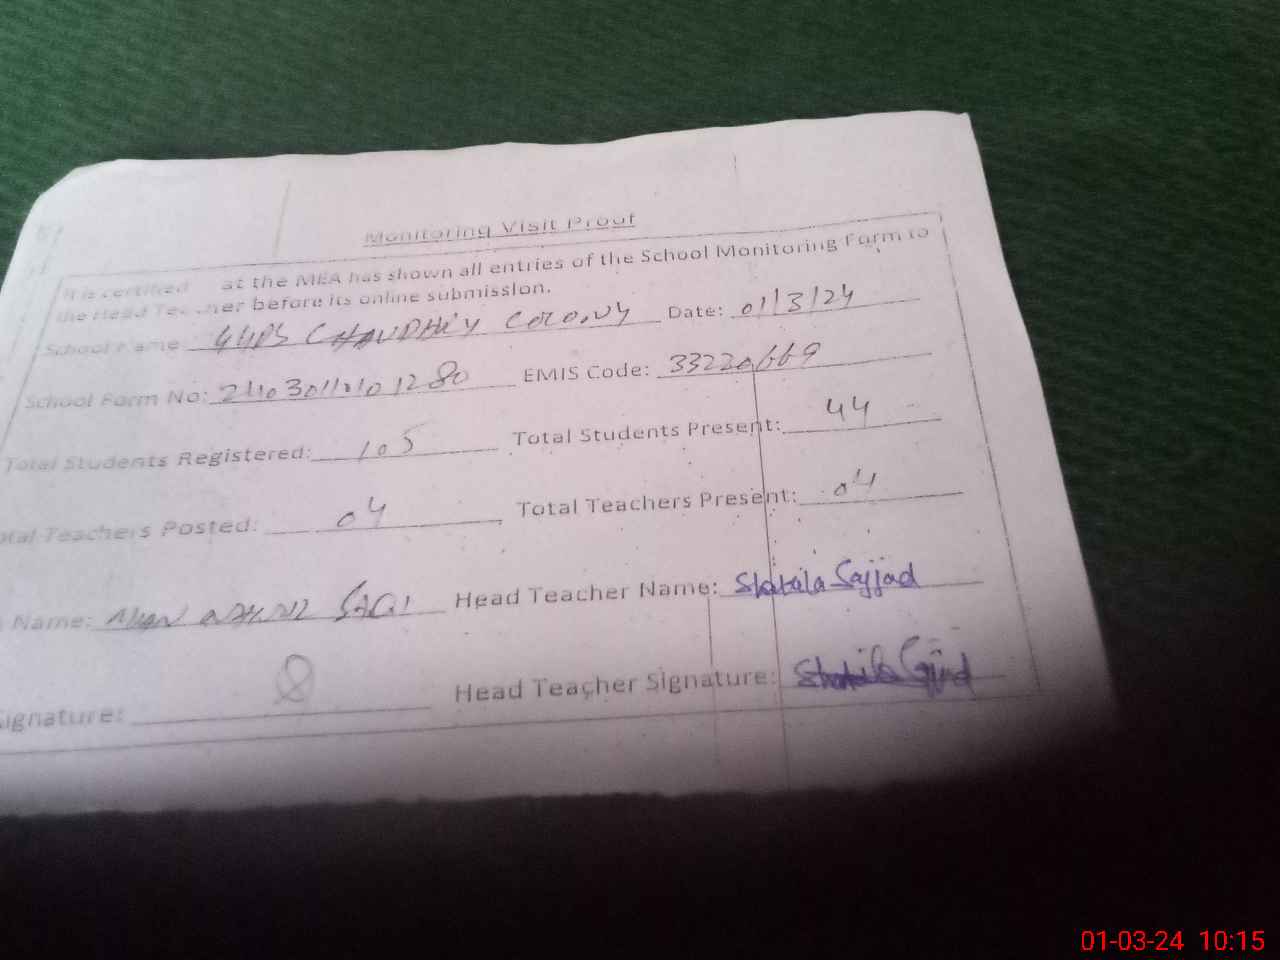 Monitoring Visit Proof
It is certified at the MEA has shown all entries of the School Monitoring Form to
the Head Teacher before its online submission.
School Name: CHAUDHRY COLONY Date: 01/3/24
School Form No: EMIS Code: 33220669
Total Students Registered: 105 Total Students Present: 44
otal Teachers Posted: 04 Total Teachers Present: 04
Name: SAQI Head Teacher Name: Shakila Sajjad
ignature: Head Teacher Signature: Shakila Sajjad
01-03-24 10:15